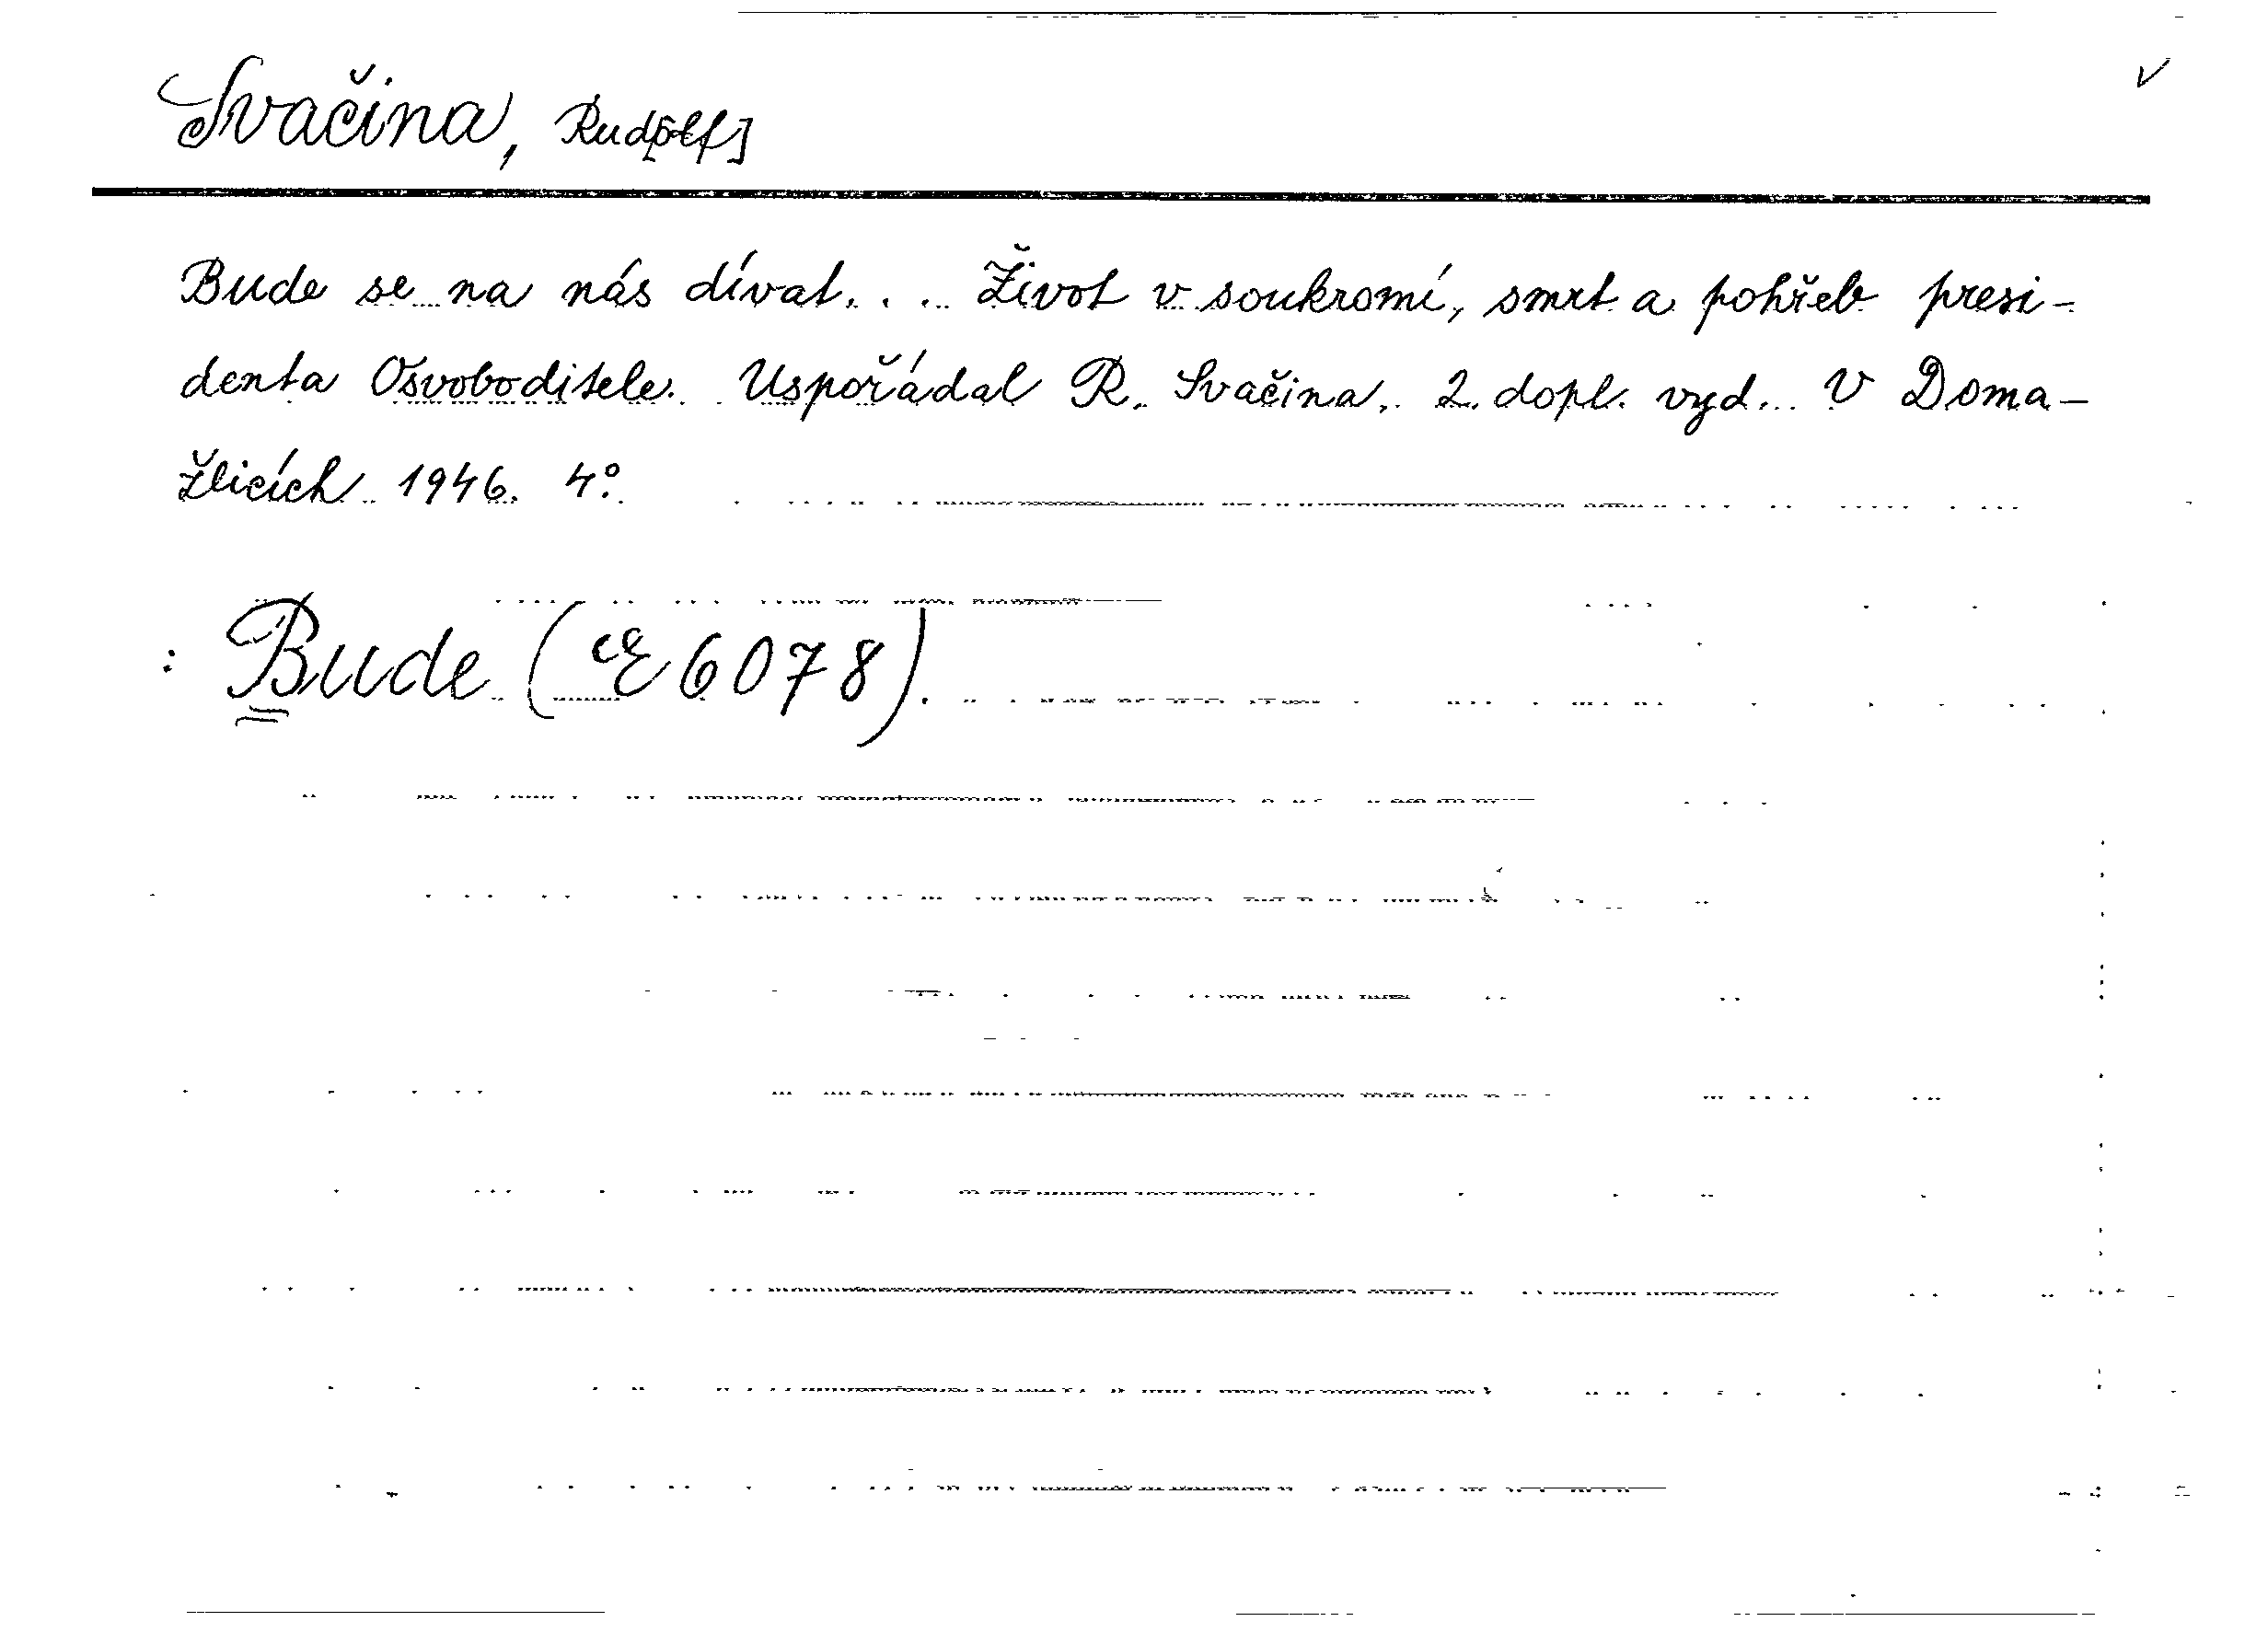 Svačina, Rud[olf]
Bude se na nás dívat... Život v soukromí, smrt a pohřeb presi-
denta Osvoboditele. Uspořádal R. Svačina. 2. dopl. vyd. V Doma-
žlicích 1946. 4°.
: Bude (6078).